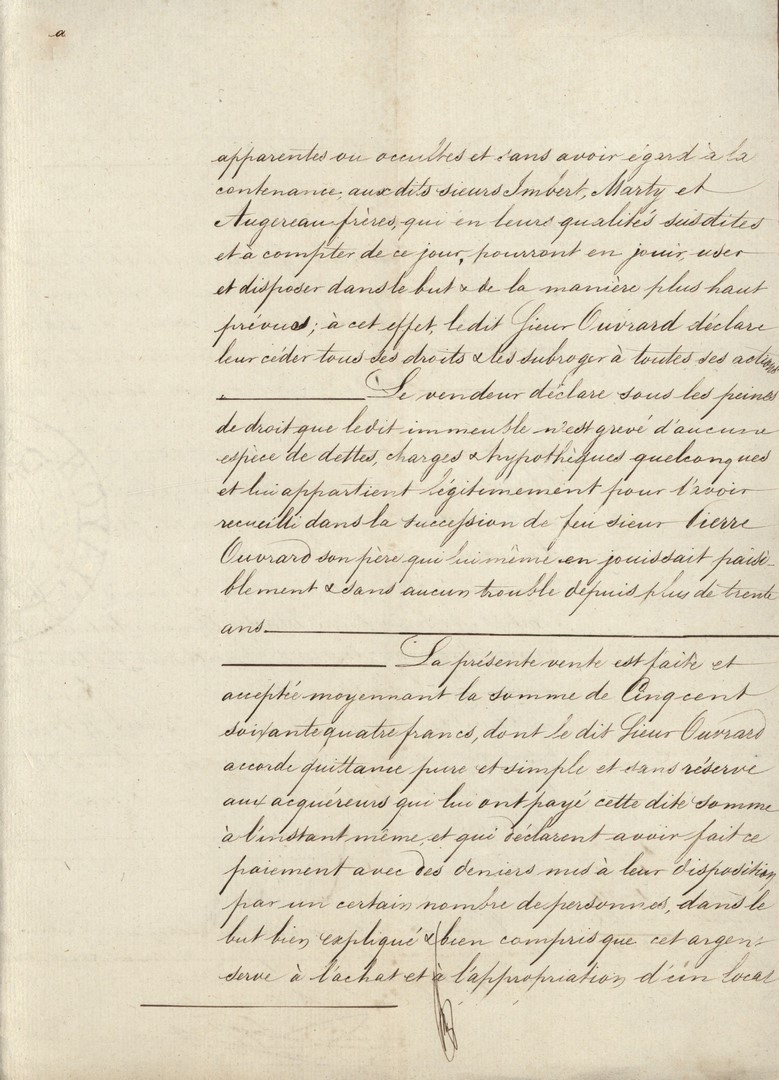 a
apparentes ou occultes et sans avoir égard à la
contenance, aux dits sieurs Imbert, Marty et
Augereau frères, qui en leurs qualités susdites
et à compter de ce jour, pourront en jouir, user
et disposer dans le but & de la manière plus haut
prévus; à cet effet, le dit Sieur Ouvrard déclare
leur céder tous ses droits & les subroger à toutes ses actions.
Le vendeur déclare sous les peines
de droit que ledit immeuble n'est grevé d'aucune
espèce de dettes, charges & hypothèques quelconques
et lui appartient légitimement pour l'avoir
recueilli dans la succession de feu sieur Pierre
Ouvrard son père qui lui même en jouissait paisi-
blement & sans aucun trouble depuis plus de trente
ans.
La présente vente est faite et
acceptée moyennant la somme de Cinq cent
soixante quatre francs, dont le dit Sieur Ouvrard
accorde quittance pure et simple et sans réserve
aux acquéreurs qui lui ont payé cette dite somme
à l'instant même, et qui déclarent avoir fait ce
paiement avec des deniers mis à leur disposition
par un certain nombre de personnes, dans le
but bien expliqué & bien compris que cet argent
serve à l'achat et à l'appropriation d'un local